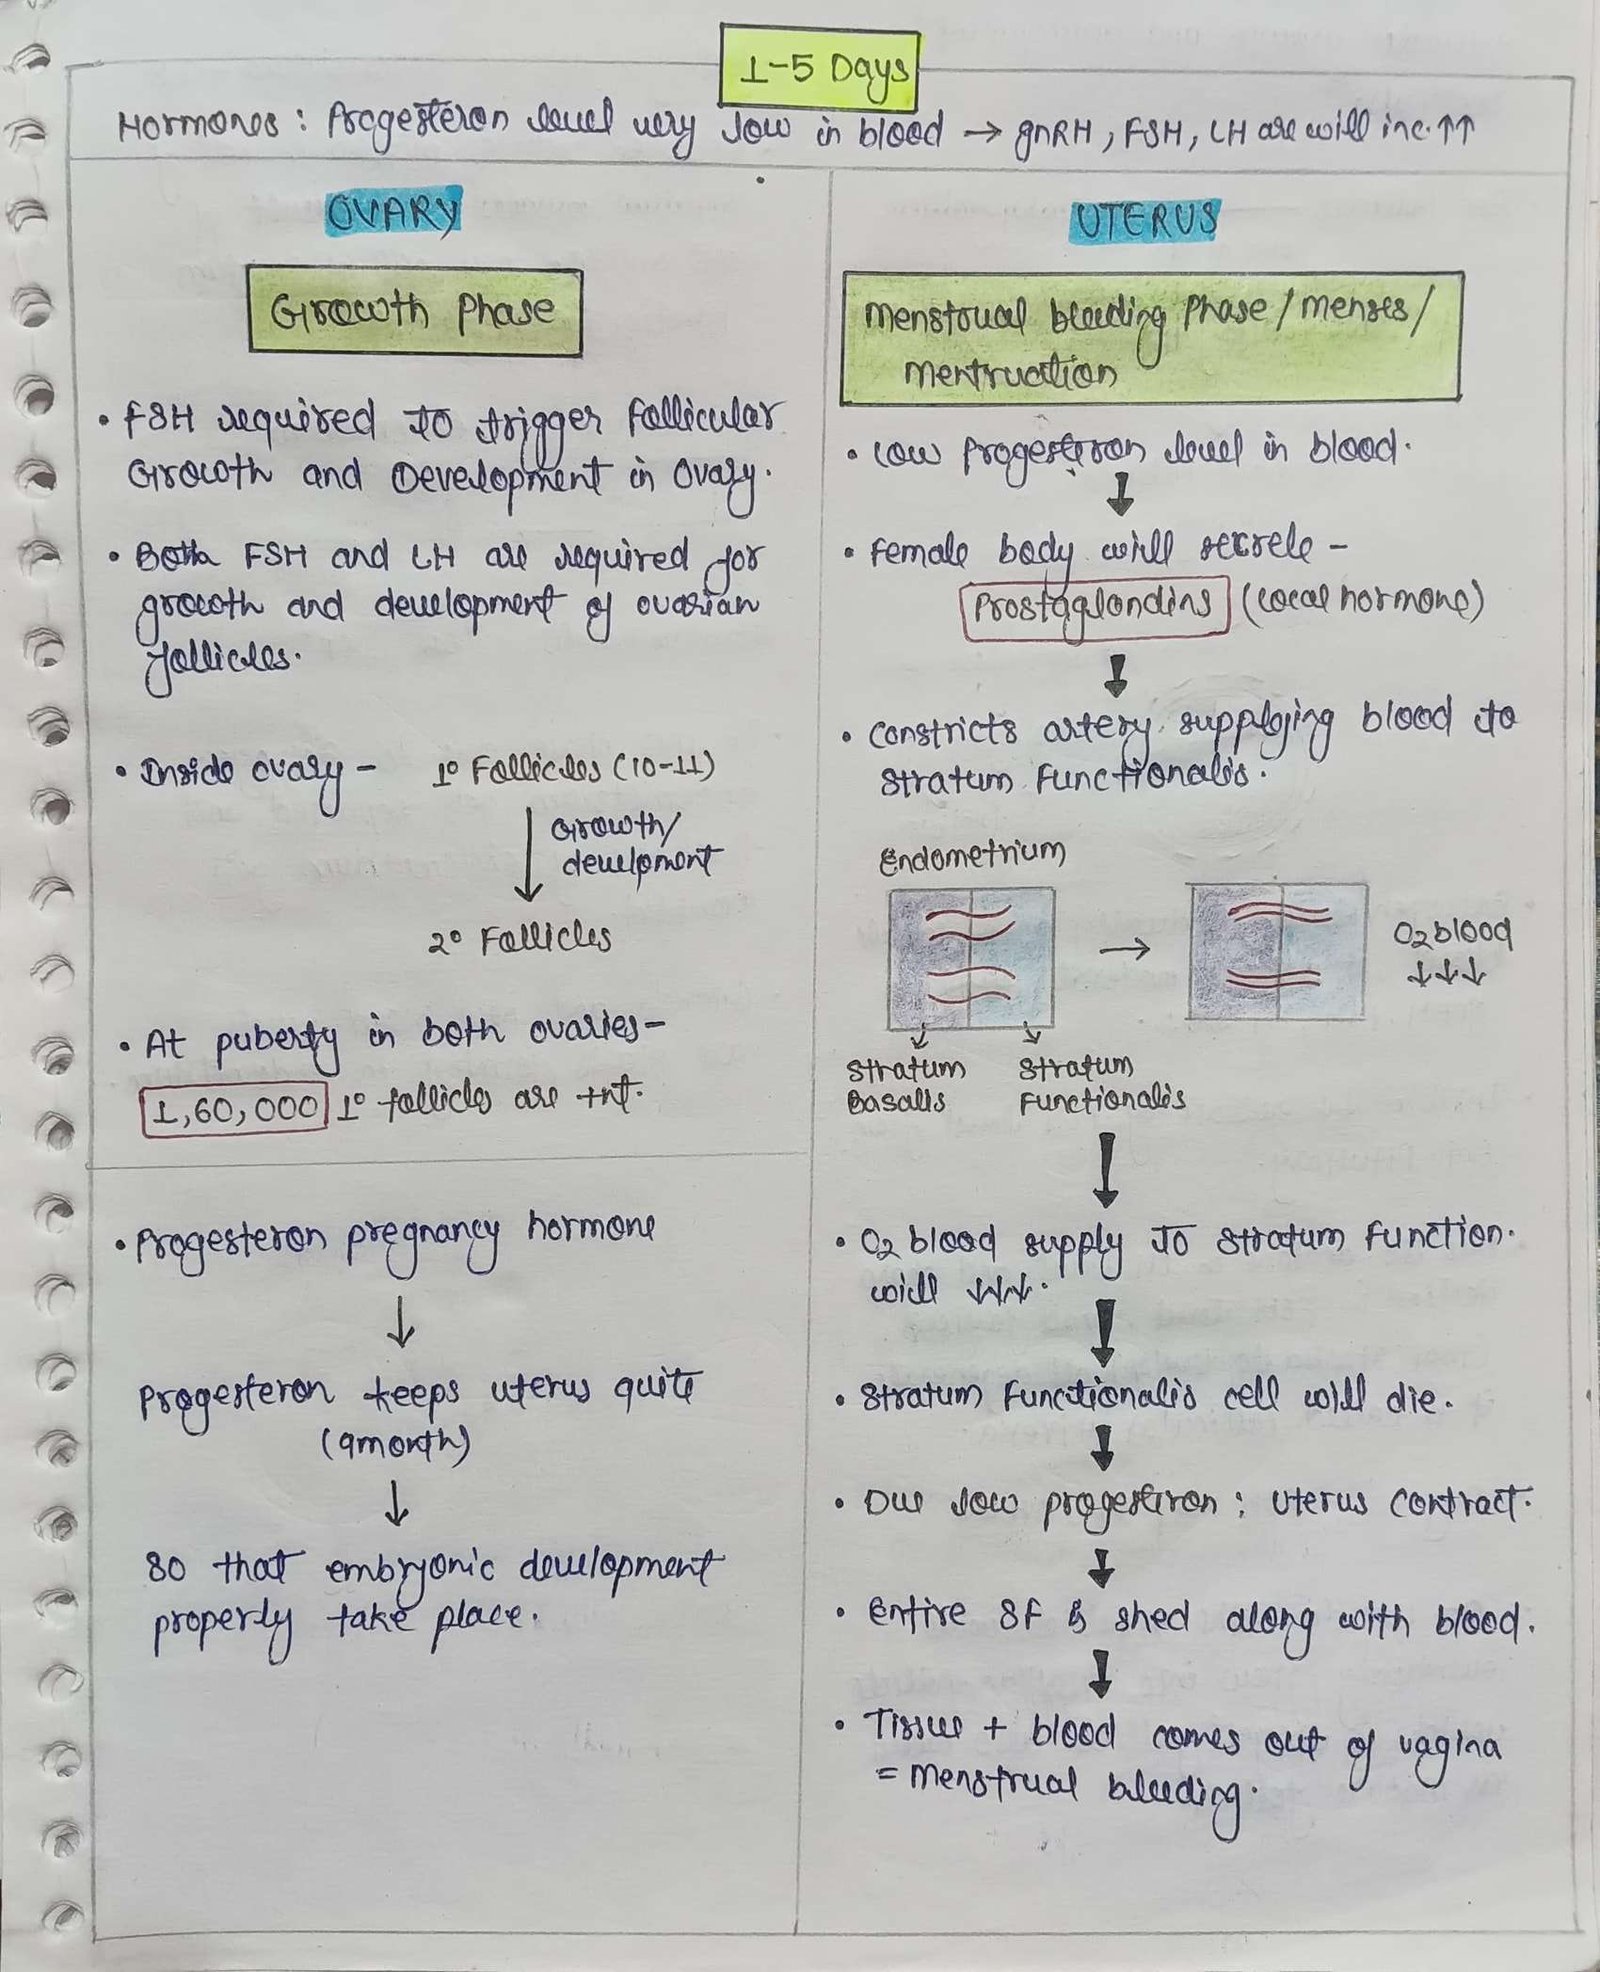 1-5 Days
Hormones : Progesteron level very low in blood → gnRH, FSH, LH are will inc.↑↑
OVARY
Growth Phase
• FSH required to trigger follicular
Growth and Development in ovary.
• Both FSH and LH are required for
growth and development of ovarian
follicles.
• Inside ovary – 1° Follicles (10-11)
Growth/
develpment
2° Follicles
• At puberty in both ovaries–
1,60,000 1° follicles are +nt.
• Progesteron pregnancy hormone
↓
Progesteron keeps uterus quite
(9month)
↓
so that embryonic development
properly take place.
UTERUS
Menstrual bleeding Phase / menses /
mentruation
• Low Progesteron level in blood.
↓
• Female body will secrete –
Prostaglandins (local hormone)
↓
• Constricts artery supplying blood to
stratum Functionalis.
Endometrium
→
O2 blood
↓↓↓
Stratum Stratum
Basalis Functionalis
↓
• O2 blood supply to stratum function.
will ↓↓↓.
↓
• Stratum Functionalis cell will die.
↓
• Due low progesteron : uterus contract.
↓
• Entire SF is shed along with blood.
↓
• Tissue + blood comes out of vagina
= menstrual bleeding.